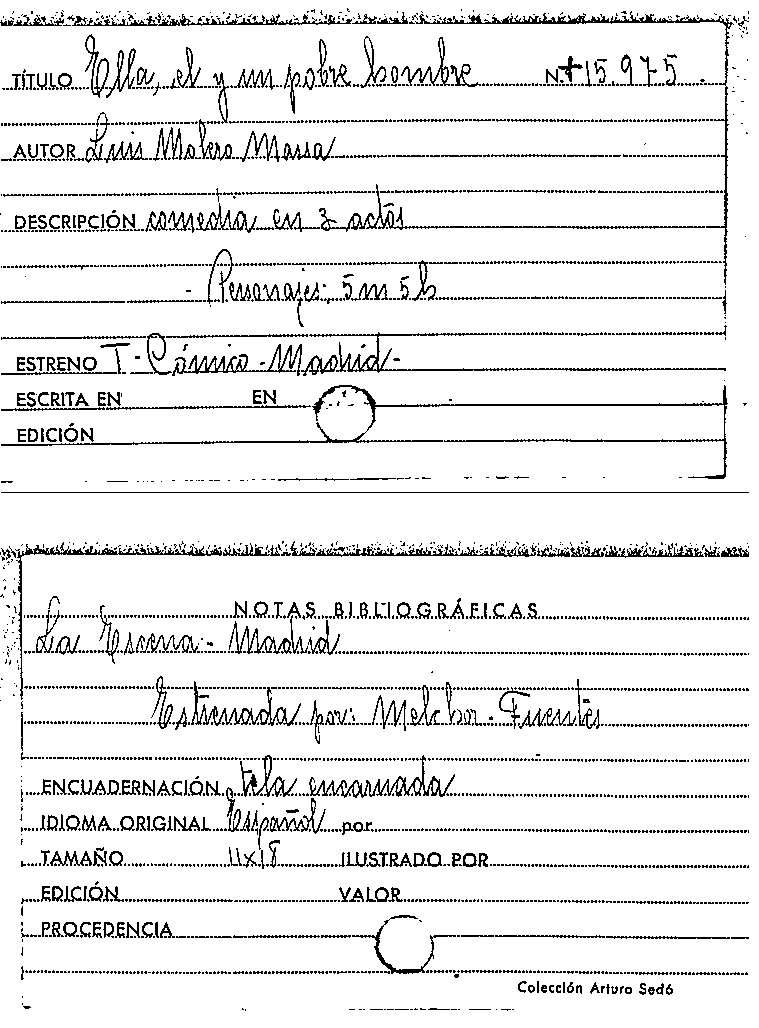 TÍTULO Ella, el y un pobre hombre N.+15.975.
AUTOR Luis Molero Massa
DESCRIPCIÓN comedia en 3 actos
- Personajes; 5 m 5 h
ESTRENO T - Cómico - Madrid -
ESCRITA EN EN
EDICIÓN
NOTAS BIBLIOGRÁFICAS
La Escena - Madrid
Estrenada por: Melchor - Fuentes
ENCUADERNACIÓN tela encarnada
IDIOMA ORIGINAL Español por
TAMAÑO 11x18 ILUSTRADO POR
EDICIÓN VALOR
PROCEDENCIA
Colección Arturo Sedó